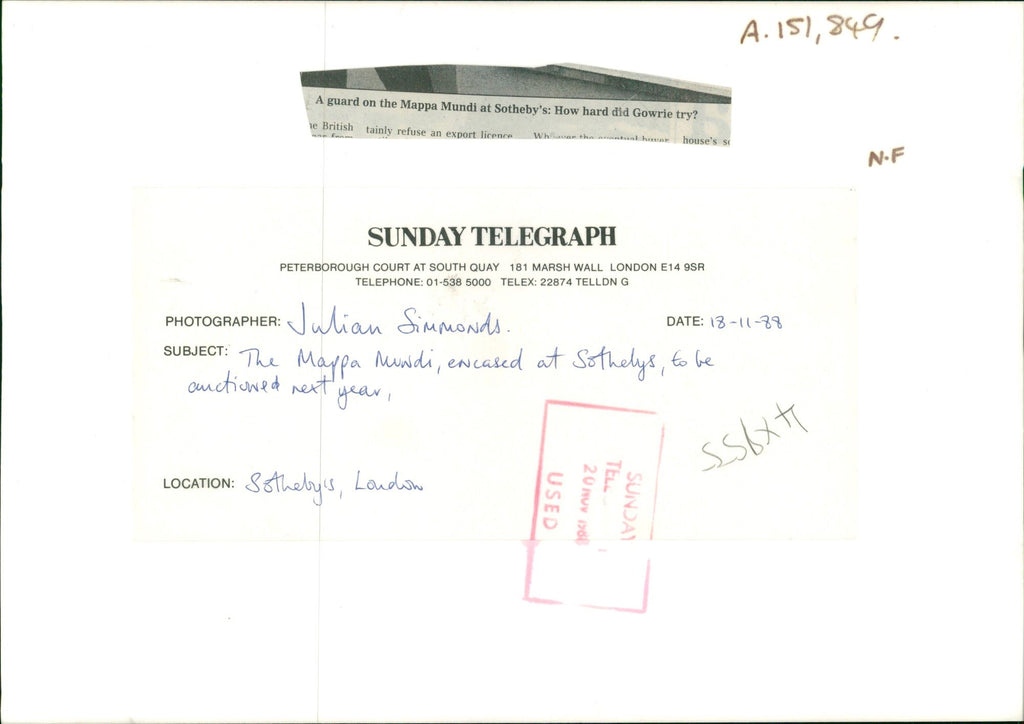 A.151,849.
A guard on the Mappa Mundi at Sotheby's: How hard did Gowrie try?
e British tainly refuse an export licence the eventual buyer house's
N.F
SUNDAY TELEGRAPH
PETERBOROUGH COURT AT SOUTH QUAY 181 MARSH WALL LONDON E14 9SR
TELEPHONE: 01-538 5000 TELEX: 22874 TELLDN G
PHOTOGRAPHER: Julian Simmonds. DATE: 18-11-88
SUBJECT: The Mappa Mundi, encased at Sothebys, to be
auctioned next year,
LOCATION: Sotheby's, London
SUNDAY
TELE
20 NOV 1988
USED